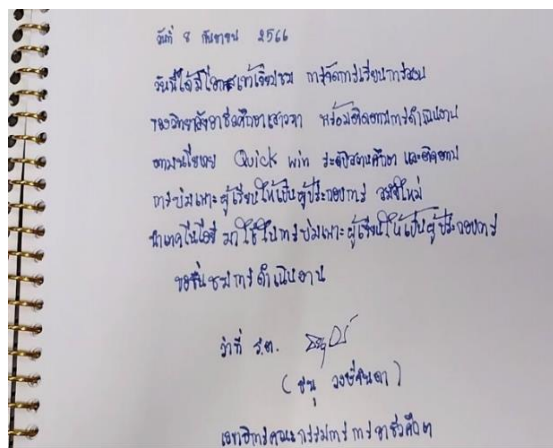 วันที่ 8 กันยายน 2566
วันนี้ได้มีโอกาสเข้าเยี่ยมชม การจัดการเรียนการสอน
ของวิทยาลัยอาชีวศึกษาเสาวภา พร้อมติดตามการดำเนินงาน
ตามนโยบาย Quick win ระดับสถานศึกษา และติดตาม
การบ่มเพาะผู้เรียนให้เป็นผู้ประกอบการ สมัยใหม่
นำเทคโนโลยี มาใช้ในการบ่มเพาะผู้เรียนให้เป็นผู้ประกอบการ
ขอชื่นชมการดำเนินงาน
ว่าที่ ร.ต.
( ธนุ วงษ์จินดา )
เลขาธิการคณะกรรมการการอาชีวศึกษา